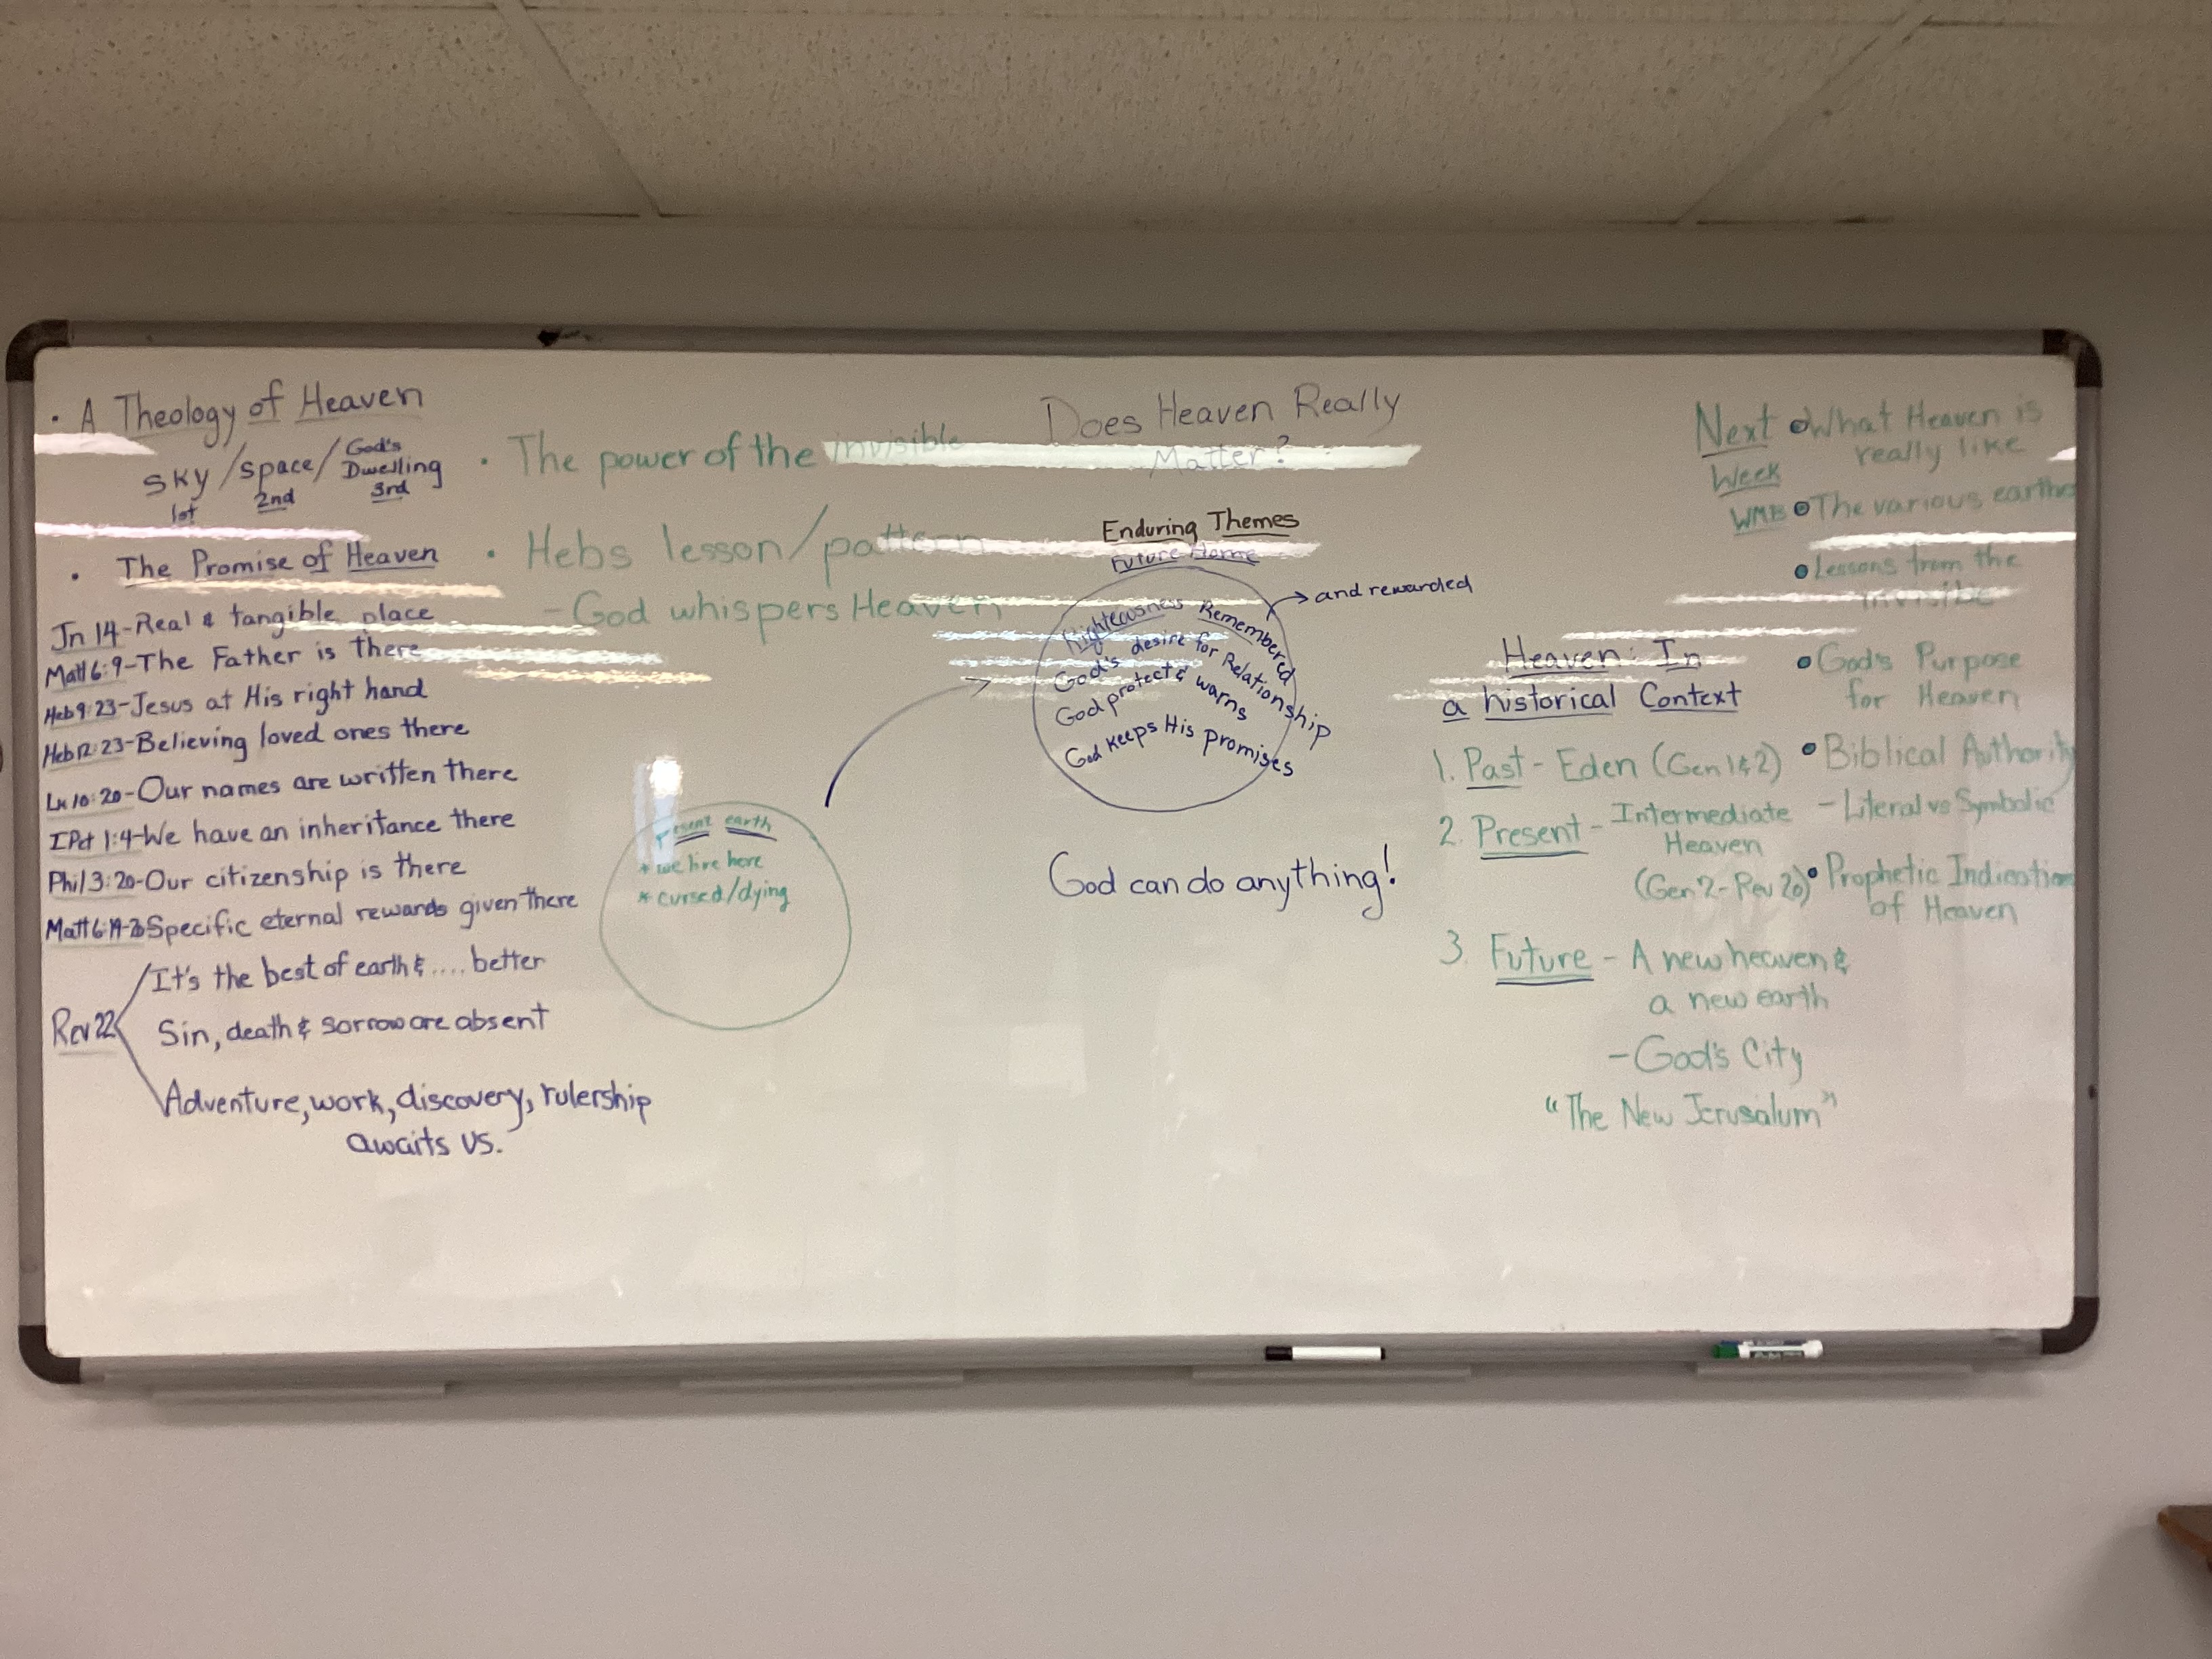 • A Theology of Heaven
Sky / space / God's Dwelling
1st 2nd 3rd
• The Promise of Heaven
Jn 14-Real & tangible place
Matt 6:9-The Father is there
Heb 9:23-Jesus at His right hand
Heb 12:23-Believing loved ones there
Lk 10:20-Our names are written there
I Pet 1:4-We have an inheritance there
Phil 3:20-Our citizenship is there
Matt 6:19-20 Specific eternal rewards given there
Rev 22
It's the best of earth & .... better
Sin, death & sorrow are absent
Adventure, work, discovery, rulership
awaits us.
• The power of the invisible
• Hebs lesson/pattern
- God whispers Heaven
Present earth
* we live here
* cursed/dying
Does Heaven Really
Matter?
Enduring Themes
Future Home
→ and rewarded
Righteousness Remembered
God's desire for Relationship
God protect & warns
God keeps His promises
God can do anything!
Heaven: In
a historical Context
1. Past - Eden (Gen 1 & 2)
2. Present - Intermediate
Heaven
(Gen 2 - Rev 20)
3. Future - A new heaven &
a new earth
- God's City
"The New Jerusalum"
Next
Week
WMB
• What Heaven is
really like
• The various earths
• Lessons from the
invisible
• God's Purpose
for Heaven
• Biblical Authority
- Literal vs Symbolic
• Prophetic Indications
of Heaven